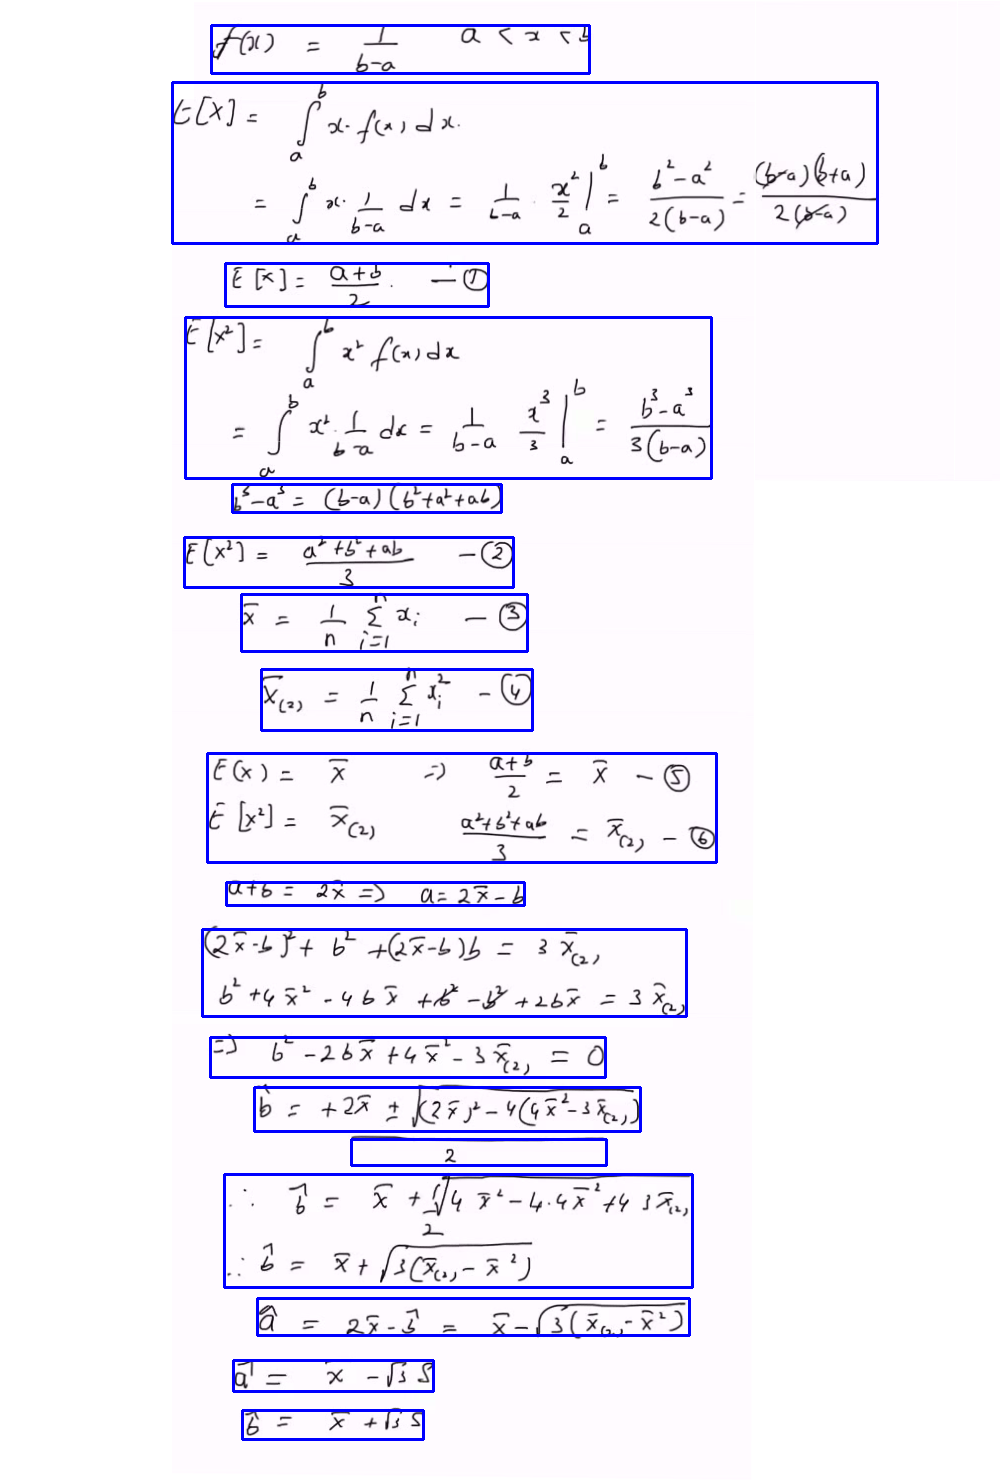 f(x) = 1/(b-a)   a < x < b
E[X] = ∫_a^b x · f(x) dx.
= ∫_a^b x · 1/(b-a) dx = 1/(b-a) · x²/2 |_a^b = (b²-a²)/(2(b-a)) = (b-a)(b+a)/(2(b-a))
E[x] = (a+b)/2 . — ①
E[x²] = ∫_a^b x² f(x) dx
= ∫_a^b x² · 1/(b-a) dx = 1/(b-a) x³/3 |_a^b = (b³-a³)/(3(b-a))
b³-a³ = (b-a)(b²+a²+ab)
E[x²] = (a²+b²+ab)/3 — ②
x̄ = 1/n Σ_{i=1}^n x_i — ③
x̄_(2) = 1/n Σ_{i=1}^n x_i² — ④
E(x) = x̄ => (a+b)/2 = x̄ — ⑤
E[x²] = x̄_(2)   (a²+b²+ab)/3 = x̄_(2) — ⑥
a+b = 2x̄ => a = 2x̄-b
(2x̄-b)² + b² + (2x̄-b)b = 3x̄_(2)
b² + 4x̄² - 4bx̄ + b² - b² + 2bx̄ = 3x̄_(2)
=> b² - 2bx̄ + 4x̄² - 3x̄_(2) = 0
b̂ = +2x̄ ± √((2x̄)² - 4(4x̄² - 3x̄_(2)))
2
∴ b̂ = x̄ + √(4x̄² - 4·4x̄² + 4 3x̄_(2))
2
∴ b̂ = x̄ + √(3(x̄_(2) - x̄²))
â = 2x̄ - b̂ = x̄ - √(3(x̄_(2) - x̄²))
â = x̄ - √3 S
b̂ = x̄ + √3 S